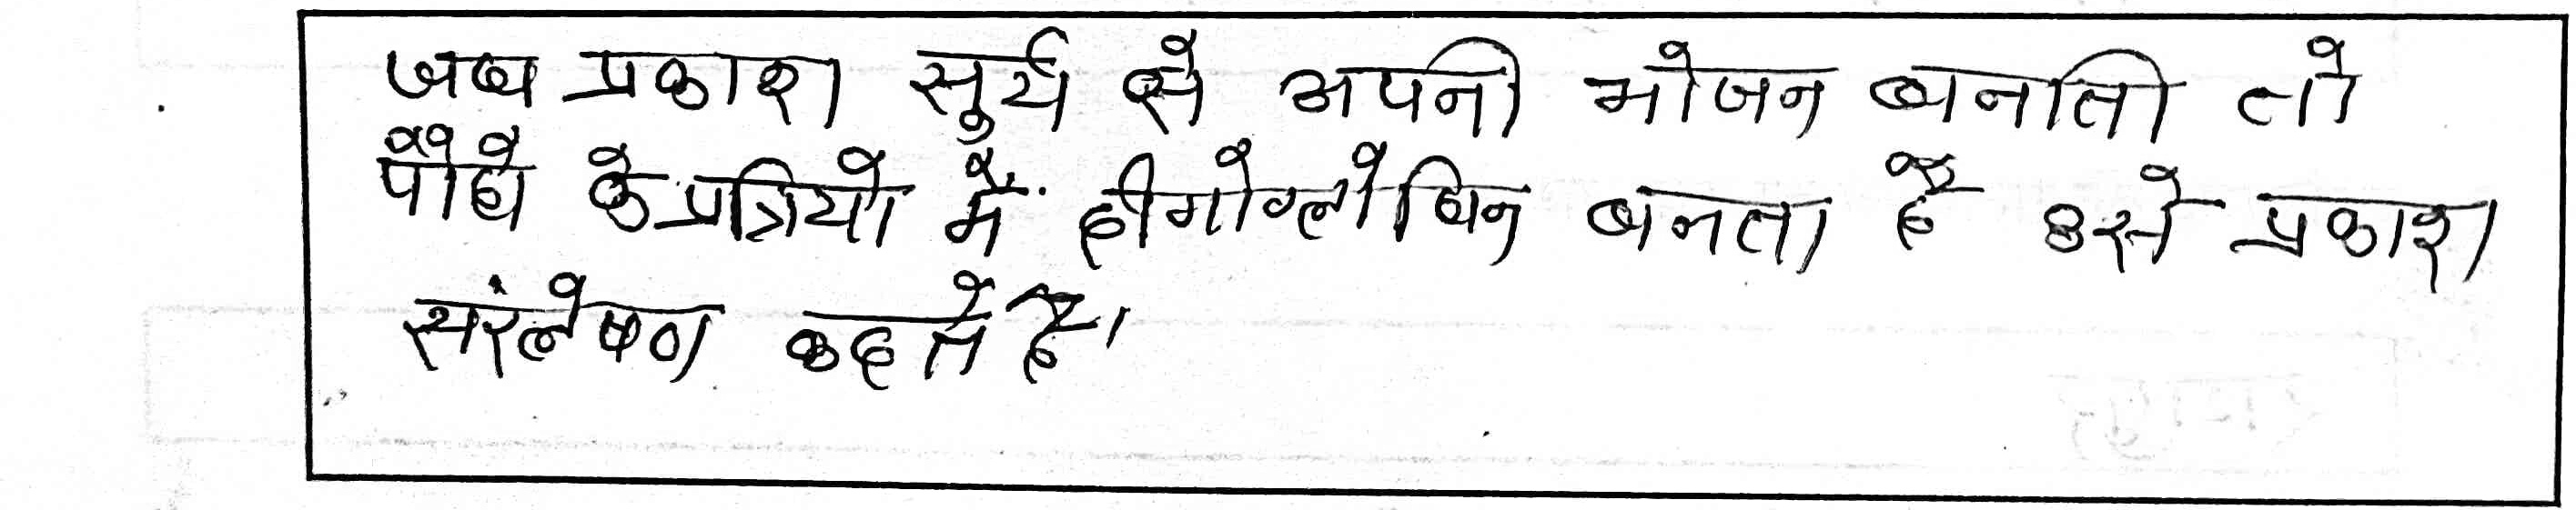 जब प्रकाश सुर्य से अपनी भोजन बनाती तो
पौधे के प्रत्रियो में हीगोग्लोबिन बनता है उसे प्रकाश
संश्लेषण कहते है।